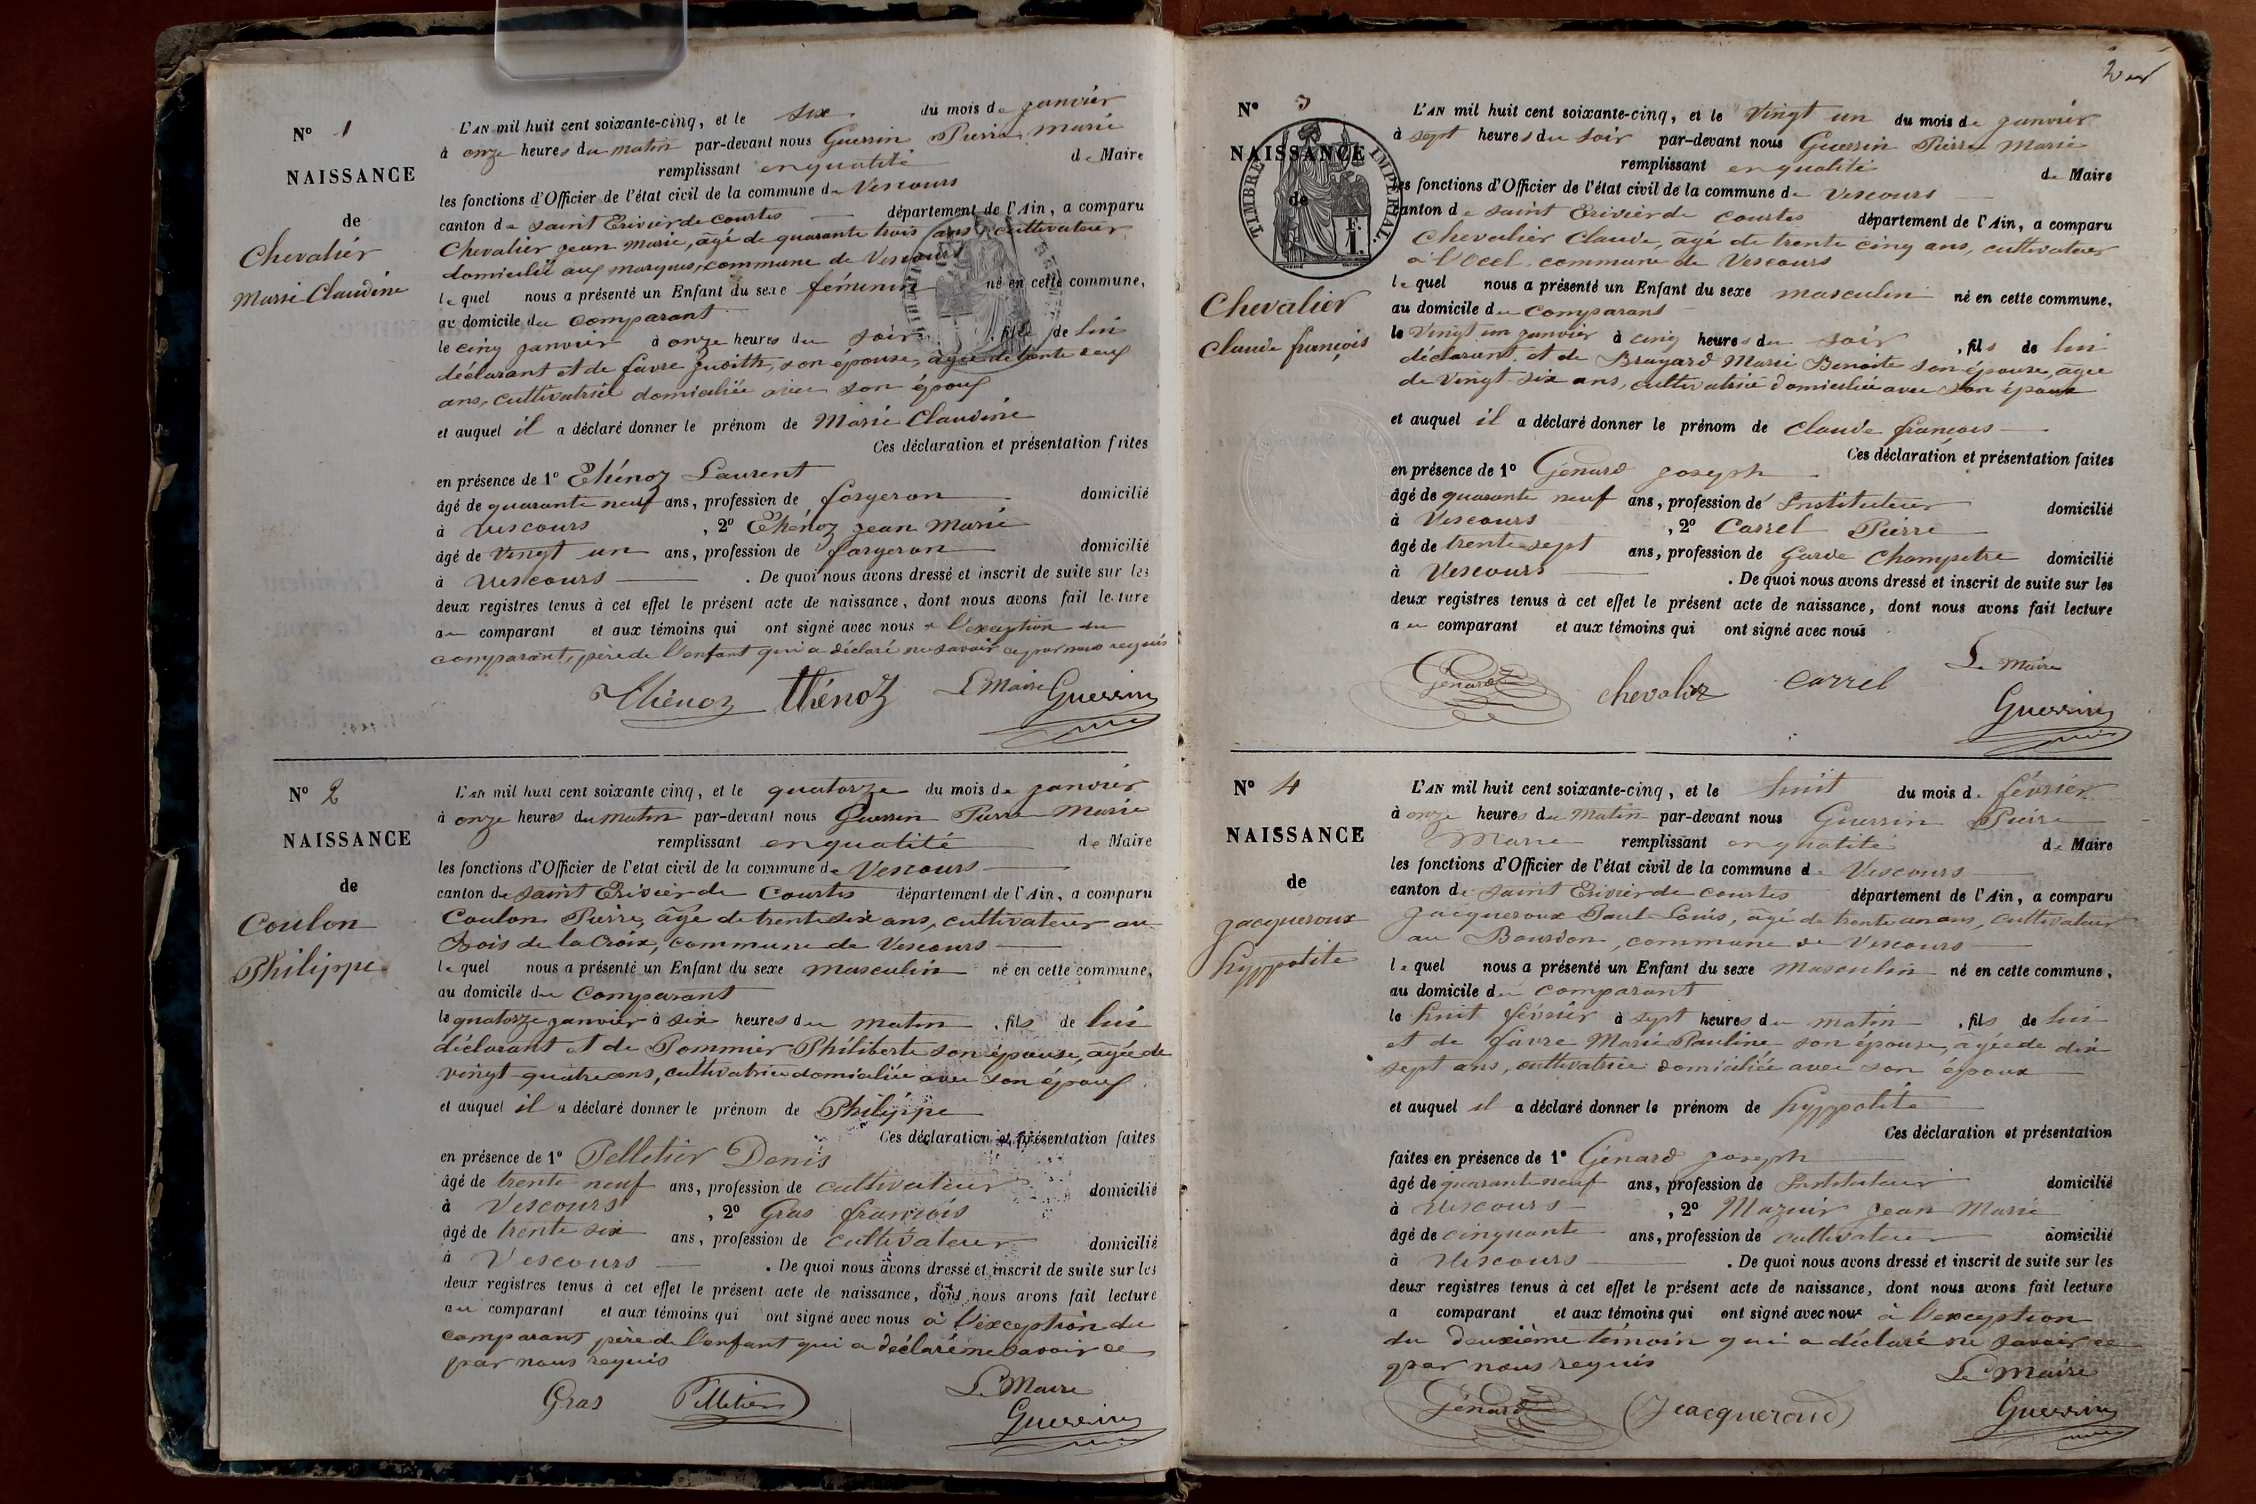 N° 1
NAISSANCE
de
Chevalier
Marie Claudine
L'AN mil huit cent soixante-cinq, et le six du mois de janvier
à onze heures du matin par-devant nous Guerrin Pierre Marie
remplissant en qualité de Maire
les fonctions d'Officier de l'état civil de la commune de Vescours
canton de Saint Trivier de Courtes département de l'Ain, a comparu
Chevalier Jean Marie, âgé de quarante trois ans, cultivateur
domicilié aux marques, commune de Vescours
lequel nous a présenté un Enfant du sexe féminin né en cette commune,
au domicile du comparant
le cinq janvier à onze heures du soir, fille de lui
déclarant et de favre Judith, son épouse, âgée de trente neuf
ans, cultivatrice domiciliée avec son époux
et auquel il a déclaré donner le prénom de Marie Claudine
Ces déclaration et présentation faites
en présence de 1° Thénoz Laurent
âgé de quarante neuf ans, profession de forgeron domicilié
à Vescours, 2° Thénoz Jean Marie
âgé de vingt un ans, profession de forgeron domicilié
à Vescours. De quoi nous avons dressé et inscrit de suite sur les
deux registres tenus à cet effet le présent acte de naissance, dont nous avons fait lecture
au comparant et aux témoins qui ont signé avec nous à l'exception du
comparant, père de l'enfant qui a déclaré ne savoir ce par nous requis
Thénoz thénoz Le Maire Guerrin
N° 2
NAISSANCE
de
Coulon
Philippe
L'AN mil huit cent soixante cinq, et le quatorze du mois de janvier
à onze heures du matin par-devant nous Guerrin Pierre Marie
remplissant en qualité de Maire
les fonctions d'Officier de l'etat civil de la commune de Vescours
canton de Saint Trivier de Courtes département de l'Ain, a comparu
Coulon Pierre, âgé de trente six ans, cultivateur au
Bois de la Croix, commune de Vescours
lequel nous a présenté un Enfant du sexe masculin né en cette commune,
au domicile du Comparant
le quatorze janvier à six heures du matin, fils de lui
déclarant et de Pommier Philiberte son épouse, âgée de
vingt quatre ans, cultivatrice domiciliée avec son époux
et auquel il a déclaré donner le prénom de Philippe
Ces déclaration et présentation faites
en présence de 1° Pelletier Denis
âgé de trente neuf ans, profession de cultivateur domicilié
à Vescours, 2° Gras françois
âgé de trente six ans, profession de cultivateur domicilié
à Vescours. De quoi nous avons dressé et inscrit de suite sur les
deux registres tenus à cet effet le présent acte de naissance, dont nous avons fait lecture
au comparant et aux témoins qui ont signé avec nous à l'exception du
comparant père de l'enfant qui a déclaré ne savoir ce
par nous requis
Gras Pelletier Le Maire
Guerrin
N° 3
NAISSANCE
de
TIMBRE IMPERIAL.
Chevalier
Claude françois
L'AN mil huit cent soixante-cinq, et le Vingt un du mois de janvier
à sept heures du soir par-devant nous Guerrin Pierre Marie
remplissant en qualité de Maire
les fonctions d'Officier de l'état civil de la commune de Vescours
canton de Saint Trivier de Courtes département de l'Ain, a comparu
Chevalier Claude, âgé de trente cinq ans, cultivateur
à l'Ocel commune de Vescours
lequel nous a présenté un Enfant du sexe masculin né en cette commune,
au domicile du Comparant
le Vingt un janvier à cinq heures du soir, fils de lui
déclarant et de Brayard Marie Benoite son épouse, agée
de vingt six ans, cultivatrice domiciliée avec son époux
et auquel il a déclaré donner le prénom de Claude françois
Ces déclaration et présentation faites
en présence de 1° Génard Joseph
âgé de quarante neuf ans, profession de Instituteur domicilié
à Vescours, 2° Carrel Pierre
âgé de trente-sept ans, profession de Garde Champetre domicilié
à Vescours. De quoi nous avons dressé et inscrit de suite sur les
deux registres tenus à cet effet le présent acte de naissance, dont nous avons fait lecture
au comparant et aux témoins qui ont signé avec nous
Le Maire
Génard chevalier Carrel
Guerrin
N° 4
NAISSANCE
de
Jacqueroux
hyppolite
L'AN mil huit cent soixante-cinq, et le huit du mois de février
à onze heures du matin par-devant nous Guerrin Pierre
Marie remplissant en qualité de Maire
les fonctions d'Officier de l'état civil de la commune de Vescours
canton de Saint Trivier de Courtes département de l'Ain, a comparu
Jacqueroux Paul Louis, âgé de trente un ans, cultivateur
au Bourdon, commune de Vescours
lequel nous a présenté un Enfant du sexe Masculin né en cette commune,
au domicile du comparant
le huit février à sept heures du matin, fils de lui
et de favre Marie Pauline son épouse, agée de dix
sept ans, cultivatrice domiciliée avec son époux
et auquel il a déclaré donner le prénom de hyppolite
Ces déclaration et présentation
faites en présence de 1° Génard Joseph
âgé de quarante neuf ans, profession de Instituteur domicilié
à Vescours, 2° Mazuir Jean Marie
âgé de cinquante ans, profession de cultivateur domicilié
à Vescours. De quoi nous avons dressé et inscrit de suite sur les
deux registres tenus à cet effet le présent acte de naissance, dont nous avons fait lecture
a comparant et aux témoins qui ont signé avec nous à l'exception
du deuxième témoin qui a déclaré ne savoir ce
par nous requis Le Maire
Génard Jeacqueroud Guerrin